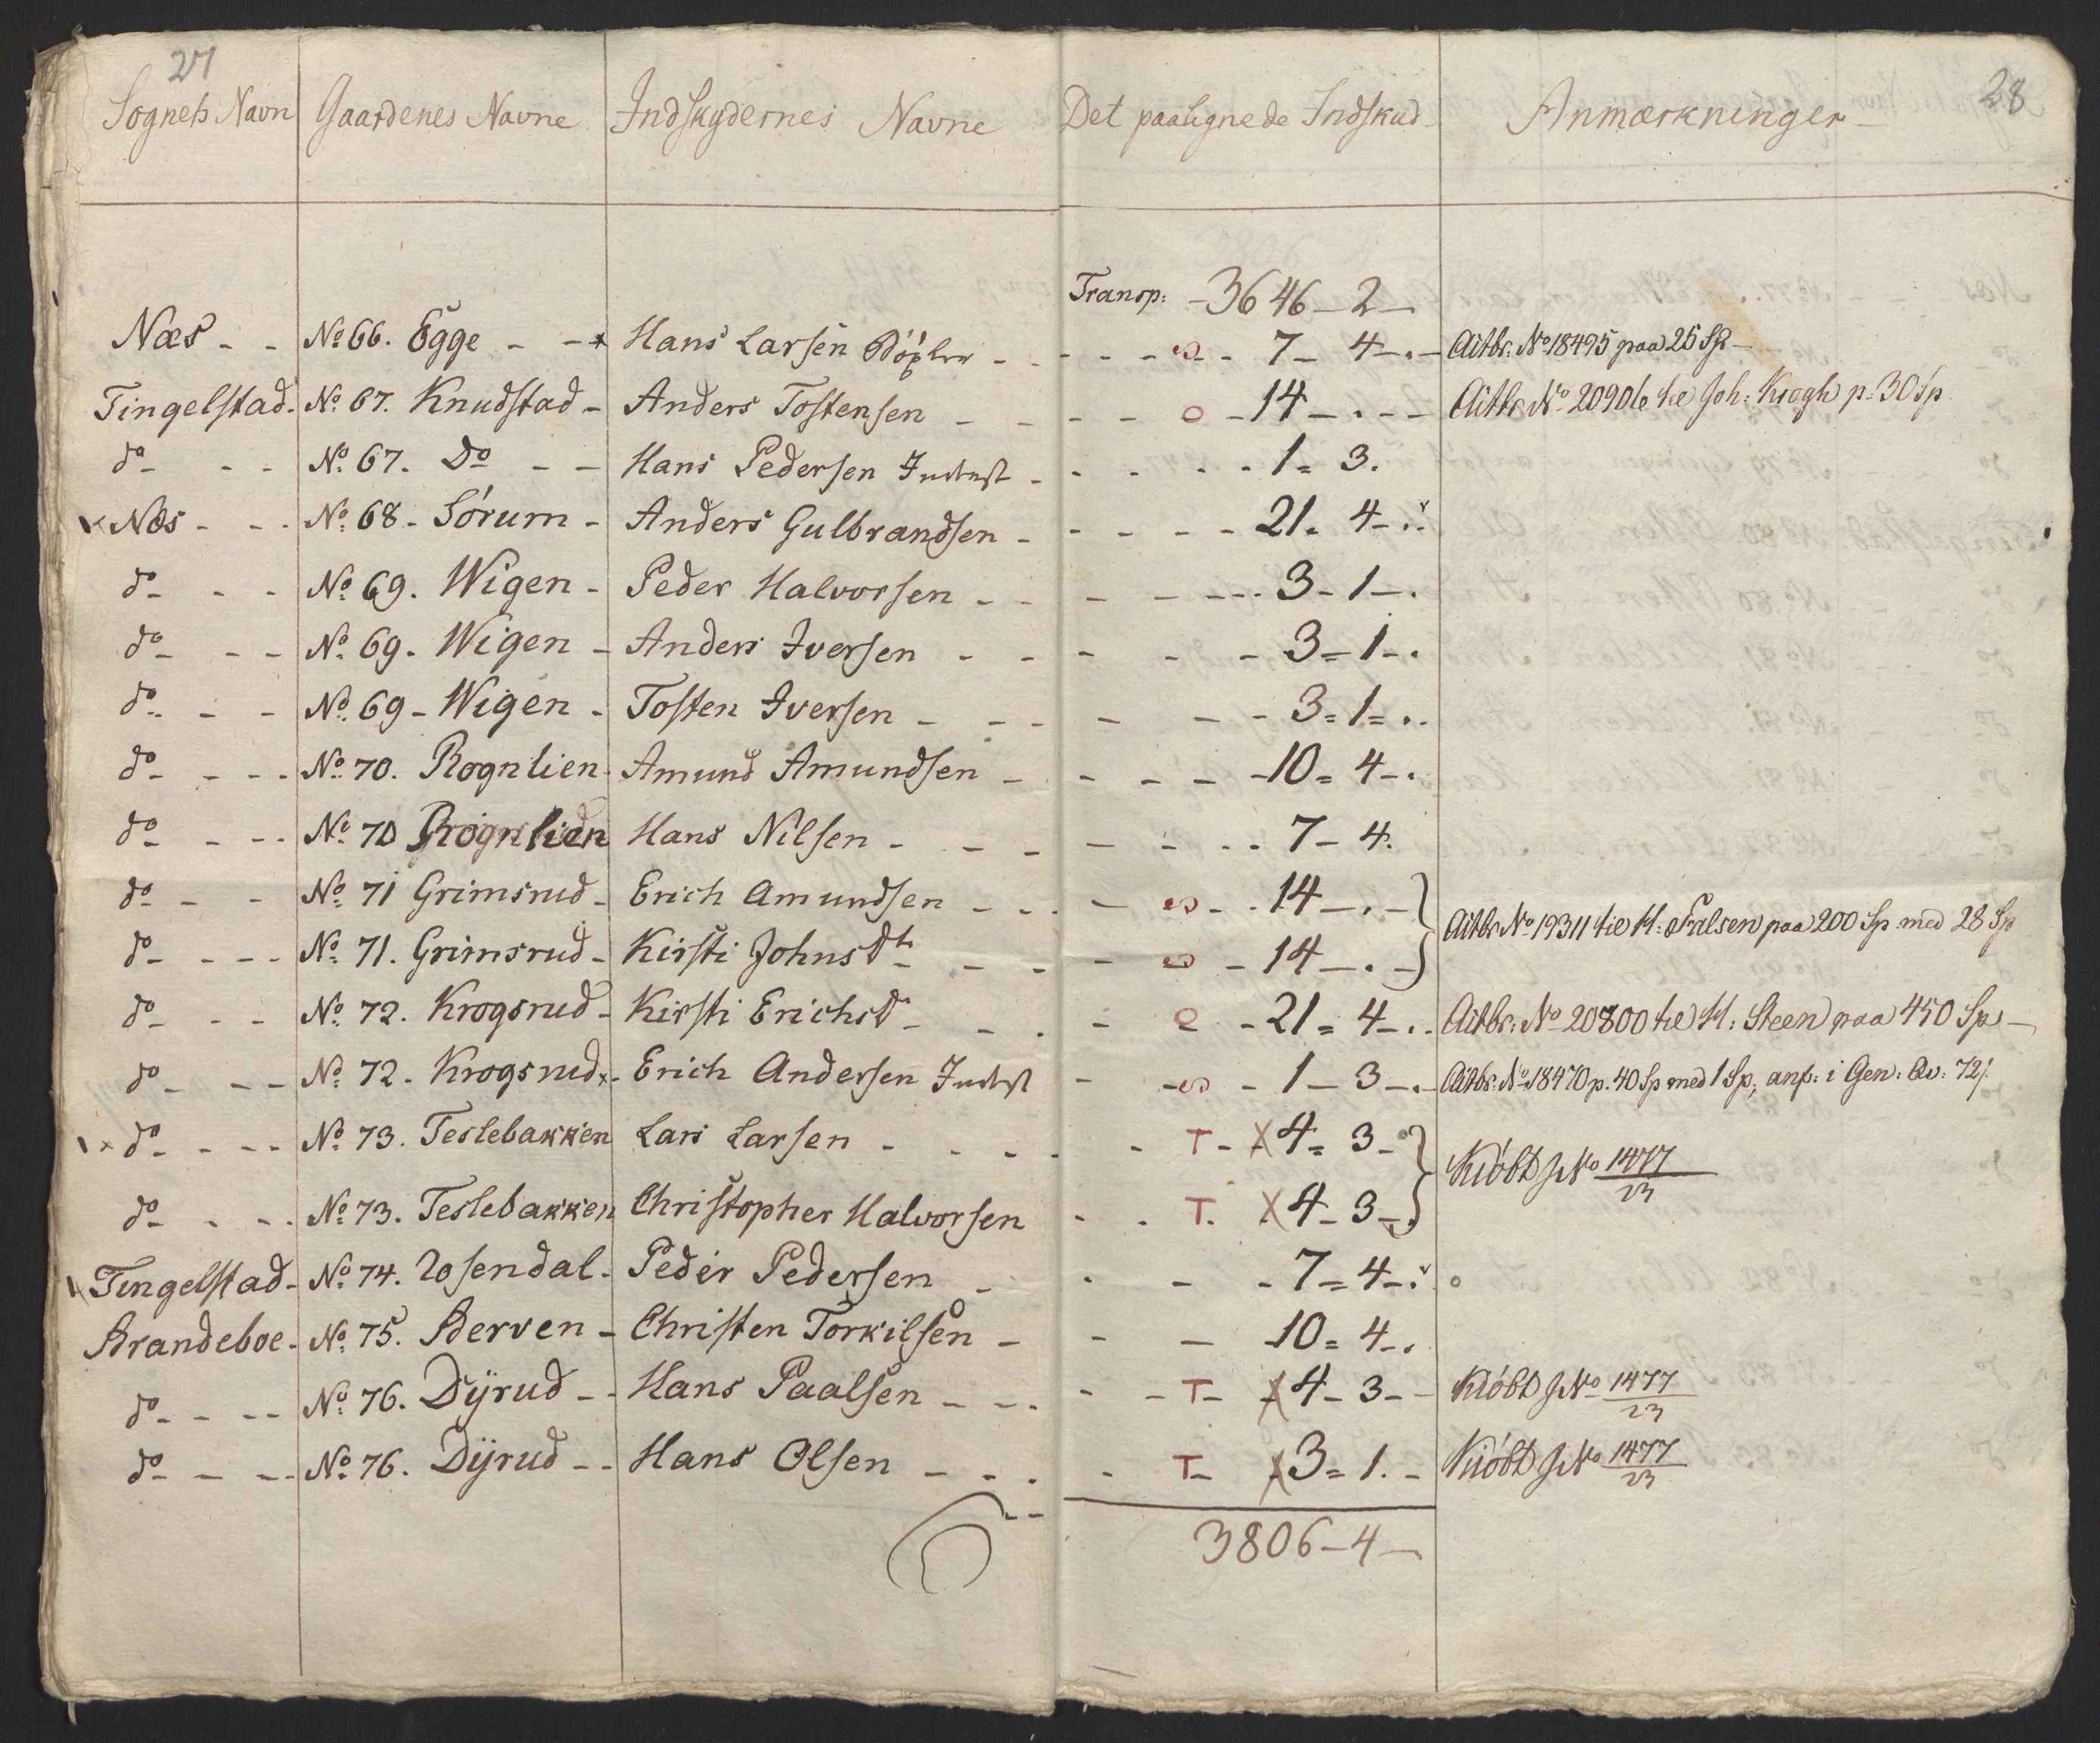 27
28
Sognets Navn Gaardenes Navne Indskydernes Navne Det paalignede Indskud Anmærkninger
Transp: - 3646 - 2 -
Næs - - No 66. Egge - - * Hans Larsen - - - - - - 7 - 4 - . - Actbr: No 18495 paa 25 Sp -
Tingelstad - No 67. Knudstad - Anders Tostensen - - - - o - 14 - . - - Actbr No 20906 til Joh: Krogh p. 30 Sp
do - - - No 67. Do - - Hans Pedersen - - - - - 1 = 3.
x Næs - - - No 68 - Sórum - Anders Gulbrandsen - - - - - 21 = 4 - .
do - - - No 69. Wigen - Peder Halvorsen - - - - - - - 3 - 1 - .
do - - - No 69. Wigen - Anders Iversen - - - - - 3 = 1 - .
do - - - No 69 - Wigen - Tosten Iversen - - - - - - 3 = 1 = . .
do - - - - No 70. Rognlien - Amund Amundsen - - - - - 10 = 4 - .
do - - - - No 70 Rognlien Hans Nilsen - - - - - . . 7 - 4.
do - - - No 71 Grimsrud - Erich Amundsen - - - - - . 14 - . - }
do - - - - No 71. Grimsrud - Kirsti Johnsdt - - - - - 14 - . - } Actbr No 19311 til H: Falsen paa 200 Sp med 28 Sp
do - - - No 72. Krogsrud - Kirsti Erichsd - - - - - 21 = 4 - . . Actbr: No 20800 til H: Steen paa 450 Sp -
do - - - No 72. Krogsrud x - Erich Andersen - - - 1 - 3 - . - Actbr. No 18470 p. 40 Sp med 1 Sp, anf: i Gen: Qv: 72/.
x do - - - - No 73. Teslebakken Lars Larsen - - - - - T - X 4 = 3 - }
do - - - - No 73. Teslebakken Christopher Halvorsen - - T. X 4 - 3 - . } Kióbt J No 1477/23
Tingelstad - No 74. Rosendal - Peder Pedersen - - - - 7 = 4 - . o
Brandeboe - No 75. Berven - Christen Torkilsen - - - 10 = 4 - .
do - - - - No 76. Dÿrud - - Hans Paalsen - - - - - T - X 4 - 3 - - Kióbt J No 1477/23
do - - - - No 76. Dÿrud - - Hans Olsen - - - - T - X 3 = 1. - Kióbt J No 1477/23
3806 - 4 -